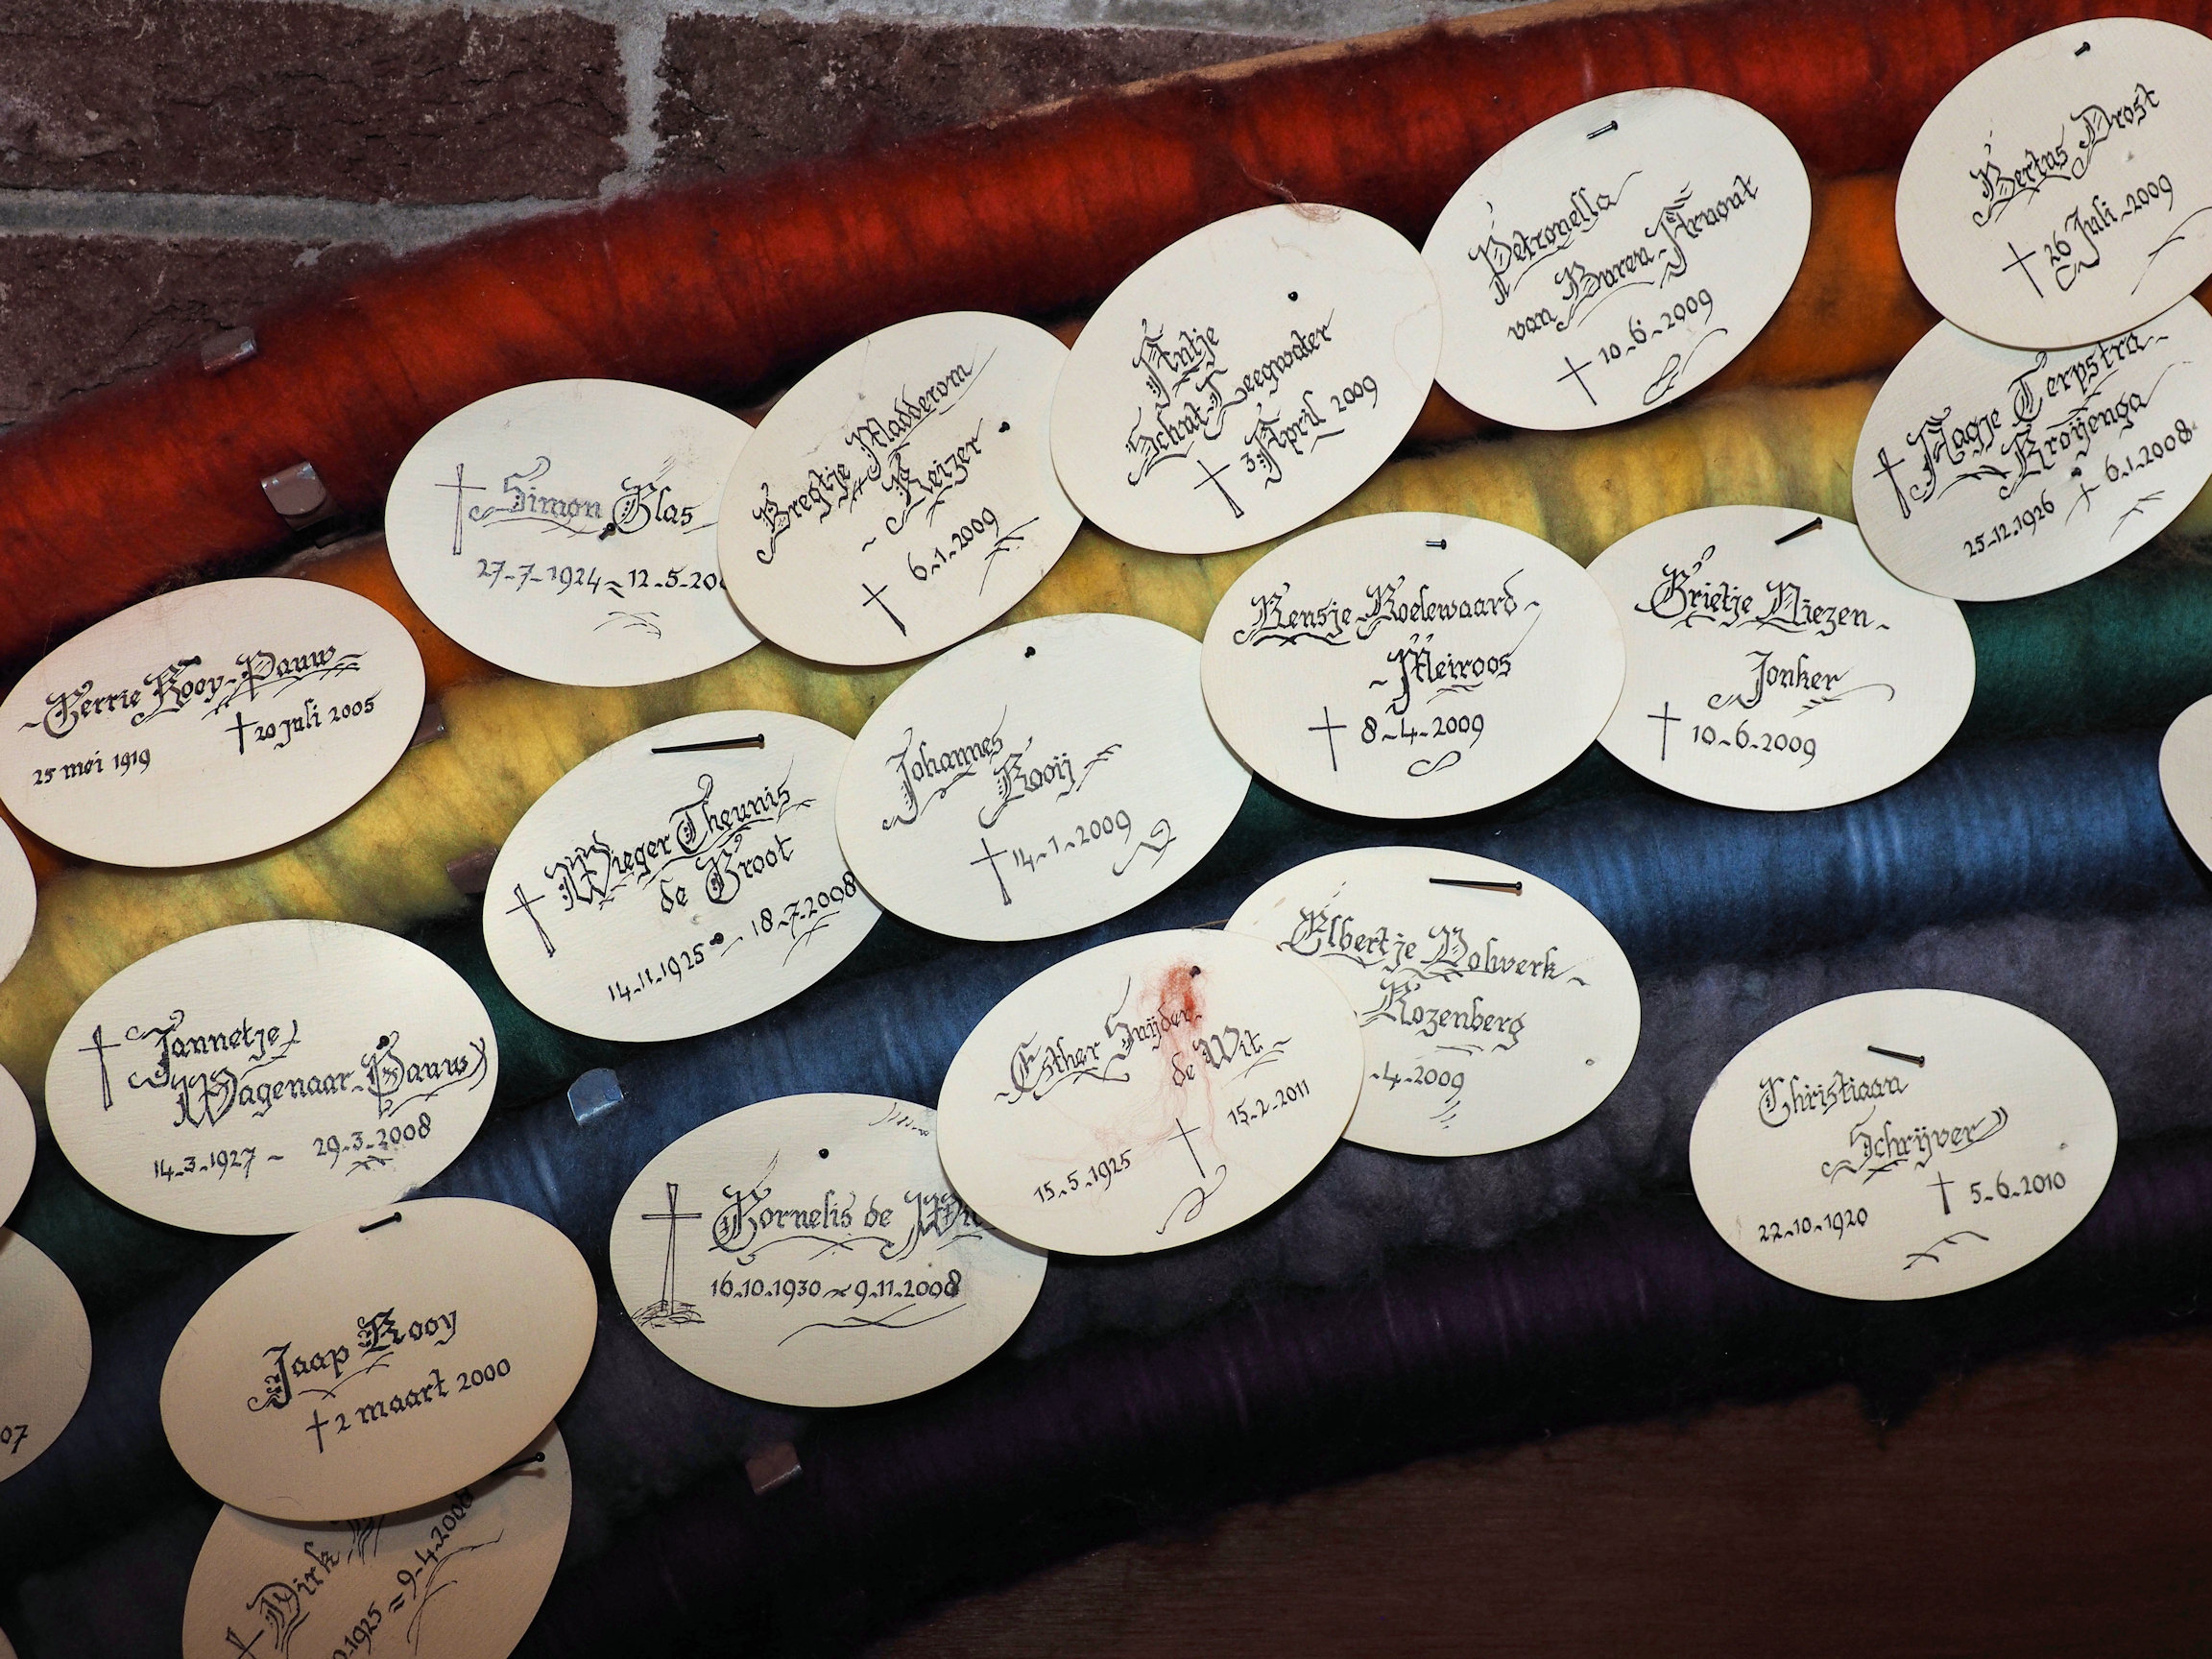 Bertus Drost
† 26 Juli 2009
Petronella
van Buren-Arvout
† 10-6-2009
Antje
Schut-Leegwater
† 3 April 2009
† Aagje Terpstra-
Broijenga
25-12-1926 † 6-1-2008
Bregtje Madderom
- Keizer
† 6-1-2009
† Simon Glas
27-7-1924 = 12-5-20
Rensje Roelewaard-
-Meiroos
† 8-4-2009
Grietje Niezen-
Jonker
† 10-6-2009
-Gerrie Rooy-Pauw-
25 mei 1919 † 20 juli 2005
Johannes
Rooij
† 14-1-2009
† Wieger Theunis
de Groot
14-11-1925 - 18-7-2008
Elbertje Bolwerk-
Rozenberg
-4-2009
† Jannetje
Wagenaar-Pauw
14-3-1927 - 29-3-2008
-Esther Snijder-
de Wit-
15-5-1925 † 15-2-2011
Christiaan
Schrijver
22-10-1920 † 5-6-2010
† Cornelis de Wi
16-10-1930 ~ 9-11-2008
Jaap Rooy
† 2 maart 2000
07
† Dirk
1925 = 9-4-2008